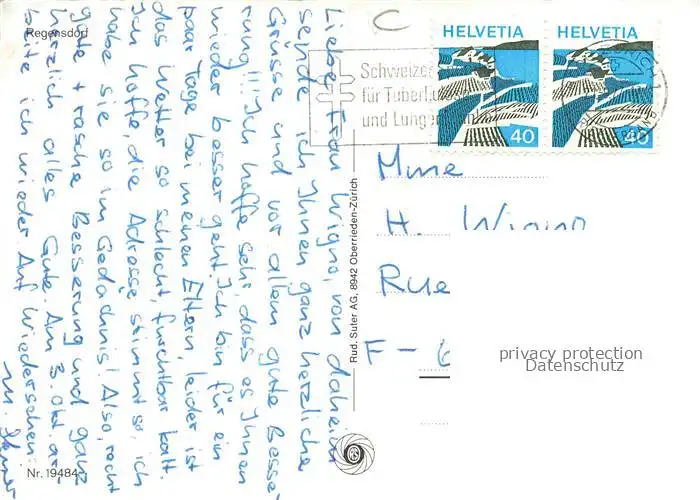 Regensdorf
Liebe Frau Wigno, von daheim
sende ich Ihnen ganz herzliche
Grüsse und vor allem gute Besse-
rung!!! Ich hoffe sehr, dass es Ihnen
wieder besser geht. Ich bin für ein
paar Tage bei meinen Eltern, leider ist
das Wetter so schlecht, furchtbar kalt.
Ich hoffe, die Adresse stimmt so, ich
habe sie so im Gedächtnis! Also, recht
gute + rasche Besserung und ganz
herzlich alles Gute. Am 3. Okt. ar-
beite ich wieder. Auf Wiedersehen:
Nr. 19484
Rud. Suter AG, 8942 Oberrieden-Zürich
C
Schweizer
für Tuberk
und Lungen
HELVETIA
40
HELVETIA
40
Mme
H. Wigno
Rue
F - 6
privacy protection
Datenschutz